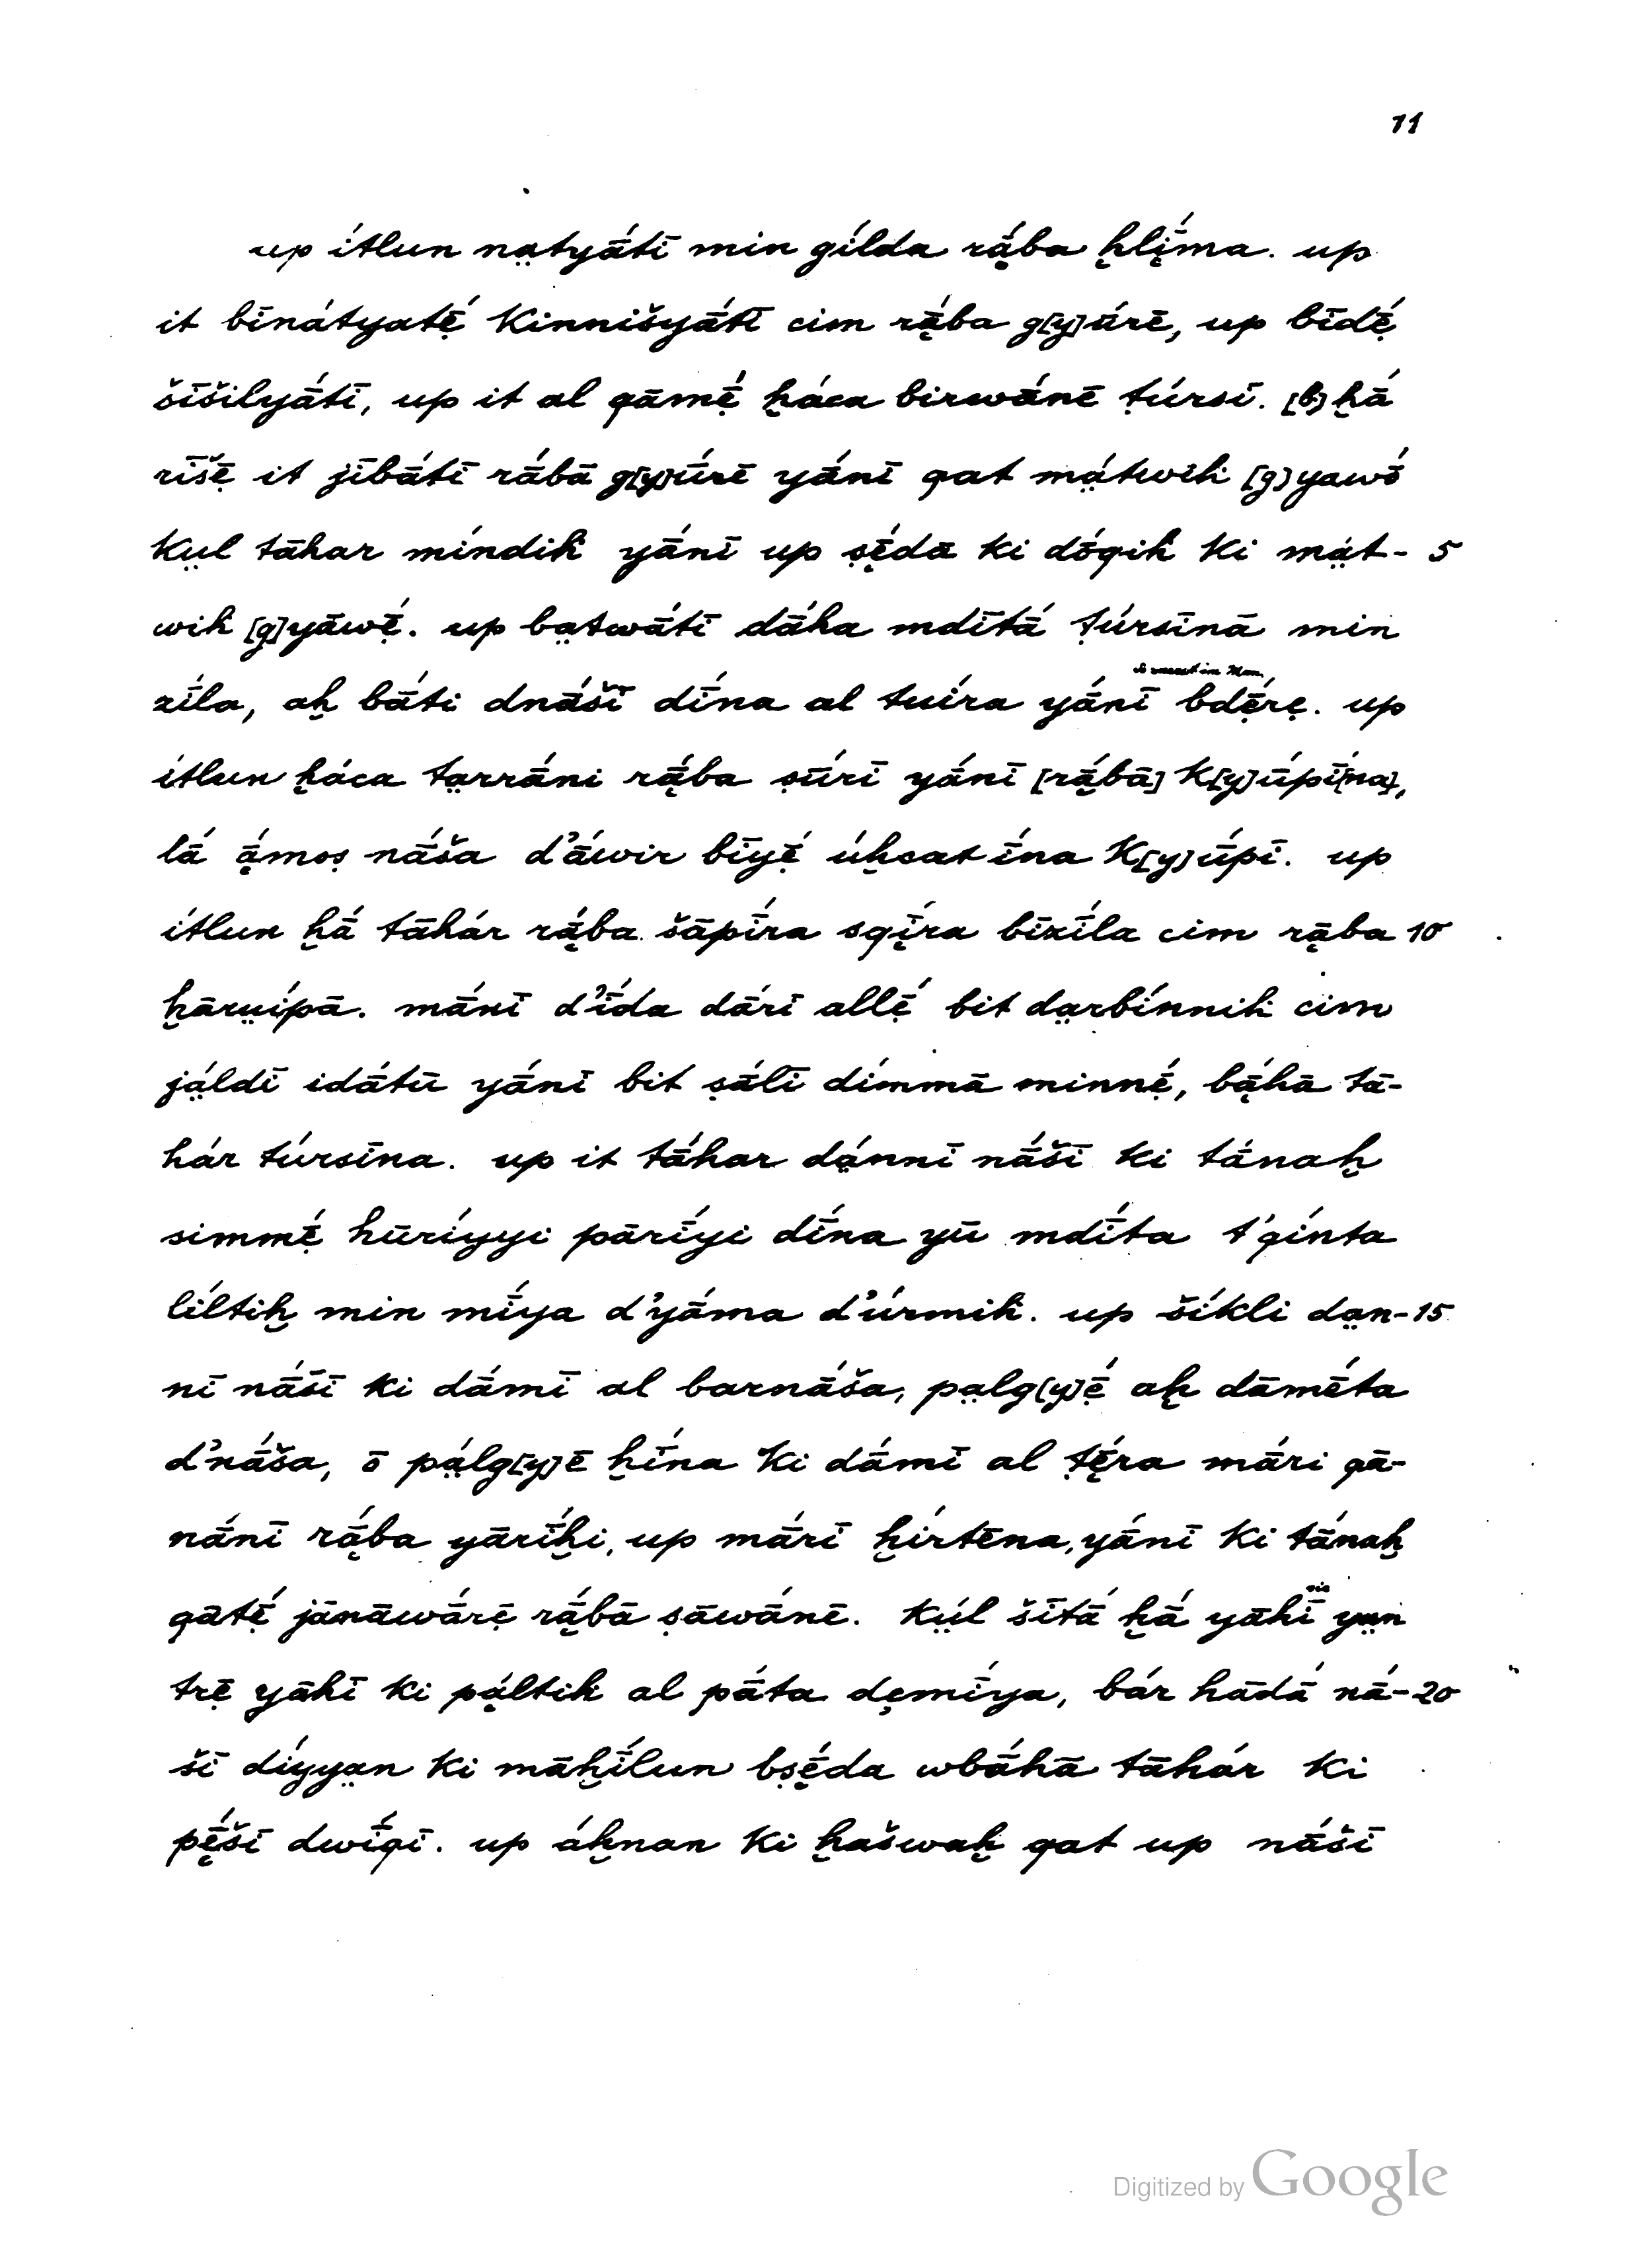 11
up ítlun na̤tyā́tī min gílda rā̤́ba ḫlī̤́ma. up
it bīnátyatẹ̄́ kinnišyā́tī cim rā̤́ba g[y]ū́rē, up bīdẹ̄́
šīšilyā́tī, up it al qāmẹ̄́ ḫáca birwā́nē ṭúrsī. [b]ḫā́
rīšẹ̄ it jībā́tī rā́bā g[y]ū́rē yā́nī qat mä́twiḣ [g]yawō
kṳl tāhar míndiḣ yā́nī up ṣḗ̤dā ki dṓqiḣ ki má̤t- 5
wiḣ [g]yāwẹ̄́. up ba̤twā́tī dā́ha mdītā́ ṭúrsīnā min
zī́la, aḫ bā́ti dnā́šī dī́na al tuíra yā́nī bdẹ̄́rẹ. up
ítlun ḫáca ta̤rrā́ni rā̤́ba ṣū́rī yā́nī [rā̤́bā] k[y]ū́pī[na],
lā́ ā̤́moṣ nā́ša d'ā́wir bīyẹ̄́ úḫcat ī́na k[y]ū́pī. up
ítlun ḫā́ tāhár rā̤́ba šāpī́ra sqī̤́ra bīzī́la cim rā̤ba 10
ḫārṳípā. mā́nī d'ī́da dā́rī allẹ̄́ bit da̤rbínniḣ cim
já̤ldī idā́tū yā́nī bit ṣā́lī dímmā minnẹ̄́, bā̤́hā tā-
hár túrsīna. up it tā́har dá̤nnī nā́šī ki tā́naḫ
simmẹ̄́ hūríyyi pārī́yi dī́na yū mdī́ta t'qínta
líltiḫ min mī́ya d'yā́ma d'úrmiḣ. up šíkli da̤n- 15
nī nā́šī ki dā́mī al barnā́ša, pa̤lg[y]ẹ̄́ aḫ dāmḗta
d'nā́ša, ō pá̤lg[y]ē ḫī́na ki dā́mī al ṭḗ̤ra mā́ri qā-
nā́nī rā̤́ba yārī́ḫi, up mā́rī ḫírtēna, yā́nī ki tā́naḫ
qātẹ̄́ jānāwā́rẹ̄ rā̤́bā ṣāwā́nē. kṳ́l šītā́ ḫā́ yāhī ya̤n
trẹ̄ yāhī ki pá̤ltiḣ al pā́ta dẹmī́ya, bár hādā́ nā́- 20
šī díyya̤n ki māḫī́lun bṣḗ̤da wbā́hā tāhár ki
pḗ̤šī dwī́qī. up áḫnan ki ḫašwaḫ qat up nā́šī
Digitized by Google